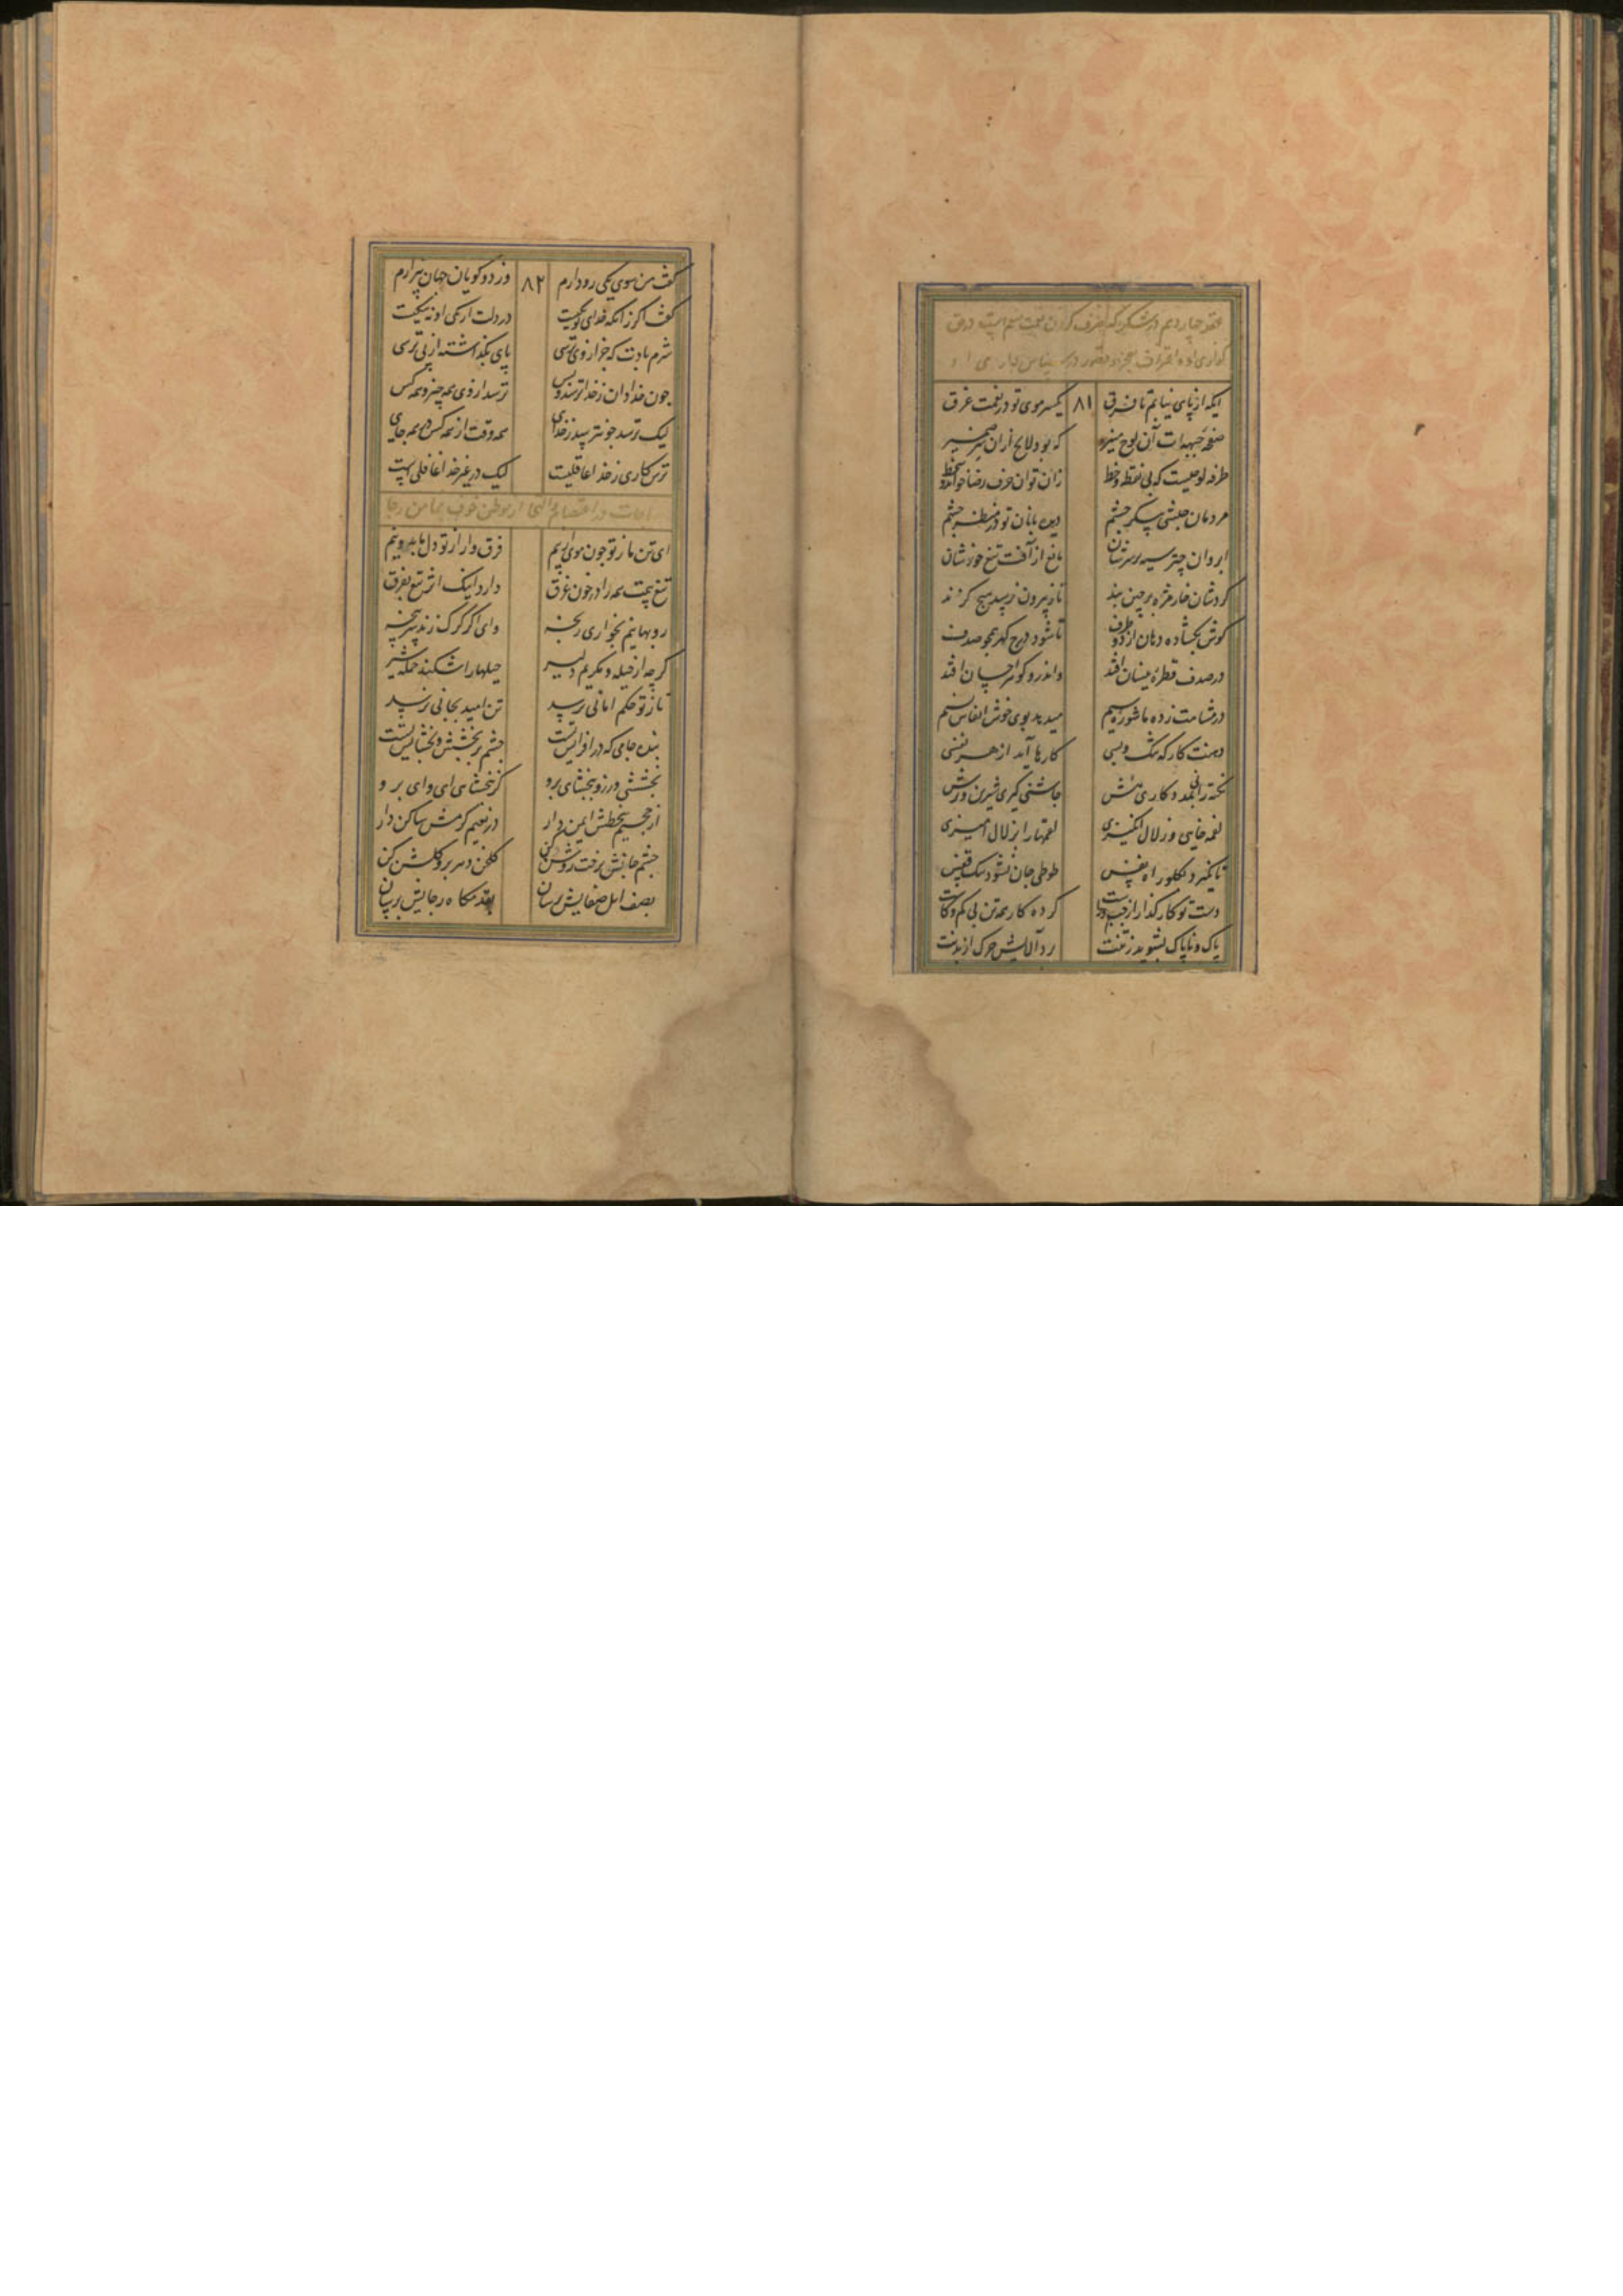 عقد چهاردهم در شکر که صرف کردن نعمت منعم است در حق
گذاری او و اعتراف بعجز و قصور در سپاس
ایکه از پای نیایم تا فرق ۸۱ یکسر موی تو در نعمت غرق
صفحه جبهه‌ات آن لوح منیر که بود لایح ازان سر ضمیر
طرفه لوحیست که بی نقطه و خط زان توان حرف رضا خواند و سخط
مردمان حبشی پیکر چشم دیده بانان تو در منظر چشم
ابروان چتر سیه بر سرشان مانع از آفت تیغ خورشان
گردشان خار مژه پرچین بند تا ز بیرون نرسد هیچ گزند
گوش بگشاده دهان از دو طرف تا شود درج گهر همچو صدف
در صدف قطره نیسان افتد واندرو گوهر احسان افتد
در مشامت زده ماشوره سیم میدهد بوی خوش انفاس نسیم
دهنت کارگه تنگ و بسی کارها آید از هر نفسی
نکته رانی بمدد کاری هش چاشنی گیری شیرین و ترش
لقمه خایی و زلال انگیزی لقمهارا بزلال آمیزی
تا نگیرد بگلو راه نفس طوطی جان نشود تنگ قفس
دست تو کارگذار از چپ و راست کرده کار همه تن بی کم و کاست
پاک و ناپاک بشوید ز تنت برد آلایش چرک از بدنت
گفت من سوی یکی رو دارم ۸۲ وز دو گویان جهان بیزارم
گفت اگر زانکه خدای تو یکیست در دلت از یکی او نه شکیست
شرم بادت که جز از وی ترسی پای بگذاشته از پی ترسی
چون خدادان ز خدا ترسد و بس ترسد از وی همه چیز و همه کس
لیک ترسد چو نترسد ز خدای همه وقت از همه کس در همه جای
ترس کاری ز خدا عاقلیست لیک در غیر خدا غافلیست
مناجات در اعتصام الهی از موطن خوف بمأمن رجا
ای تن ما ز تو چون موی از بیم فرق وار از تو دل ما بدو نیم
تیغ بیمت همه را در خون غرق دارد اینک اثر تیغ بفرق
روبهانیم بخواری رنجه وای اگر گرگ زند سرپنجه
گرچه از حیله و مکریم دلیر حیلها را شکند حمله شیر
تا ز تو حکم امانی نرسد تن امید بجانی نرسد
بنده جامی که در افزایش تست چشم بر بخشش و بخشایش تست
بخششی ورز و ببخشای برو گر نبخشای ای وای برو
از جحیم سخطش ایمن دار در نعیم کرمش ساکن دار
چشم جانش برخت روشن کن گلخن دهر برو گلشن کن
بصف اهل صفایش برسان بقدمگاه رجایش برسان